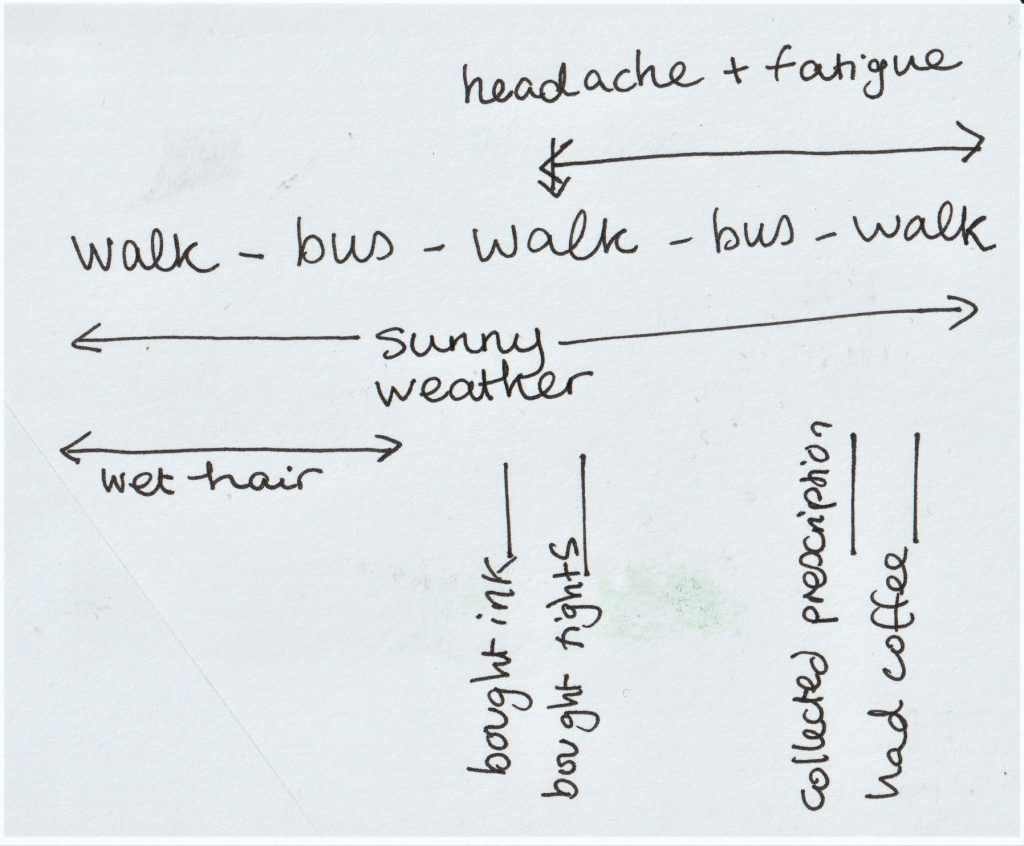 headache + fatigue
walk - bus - walk - bus - walk
sunny
weather
wet hair
bought ink
bought tights
collected prescription
had coffee